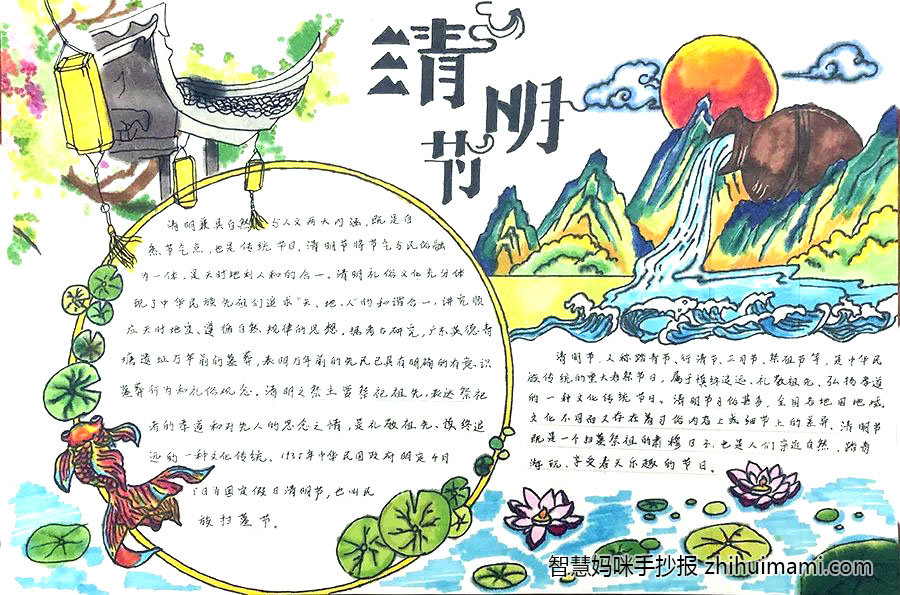 清明节
清明兼具自然与人文两大内涵，既是自
然节气点，也是传统节日。清明节将节气与民俗融
为一体，是天时地利人和的合一。清明礼俗文化充分体
现了中华民族先祖们追求“天、地、人”的和谐合一，讲究顺
应天时地宜、遵循自然规律的思想。据考古研究，广东英德青
塘遗址万年前的墓葬，表明万年前的先民已具有明确的有意识
墓葬行为和礼俗观念。清明之祭主要祭祀祖先，表达祭祀
者的孝道和对先人的思念之情，是礼敬祖先、慎终追
远的一种文化传统。1935年中华民国政府明定4月
5日为国定假日清明节，也叫民
族扫墓节。
清明节，又称踏青节、行清节、三月节、祭祖节等，是中华民
族传统的重大春祭节日，属于慎终追远、礼敬祖先、弘扬孝道
的一种文化传统节日。清明节习俗甚多，全国各地因地域
文化不同而又存在着习俗内容上或细节上的差异。清明节
既是一个扫墓祭祖的肃穆日子，也是人们亲近自然、踏青
游玩、享受春天乐趣的节日。
智慧妈咪手抄报 zhihuimami.com